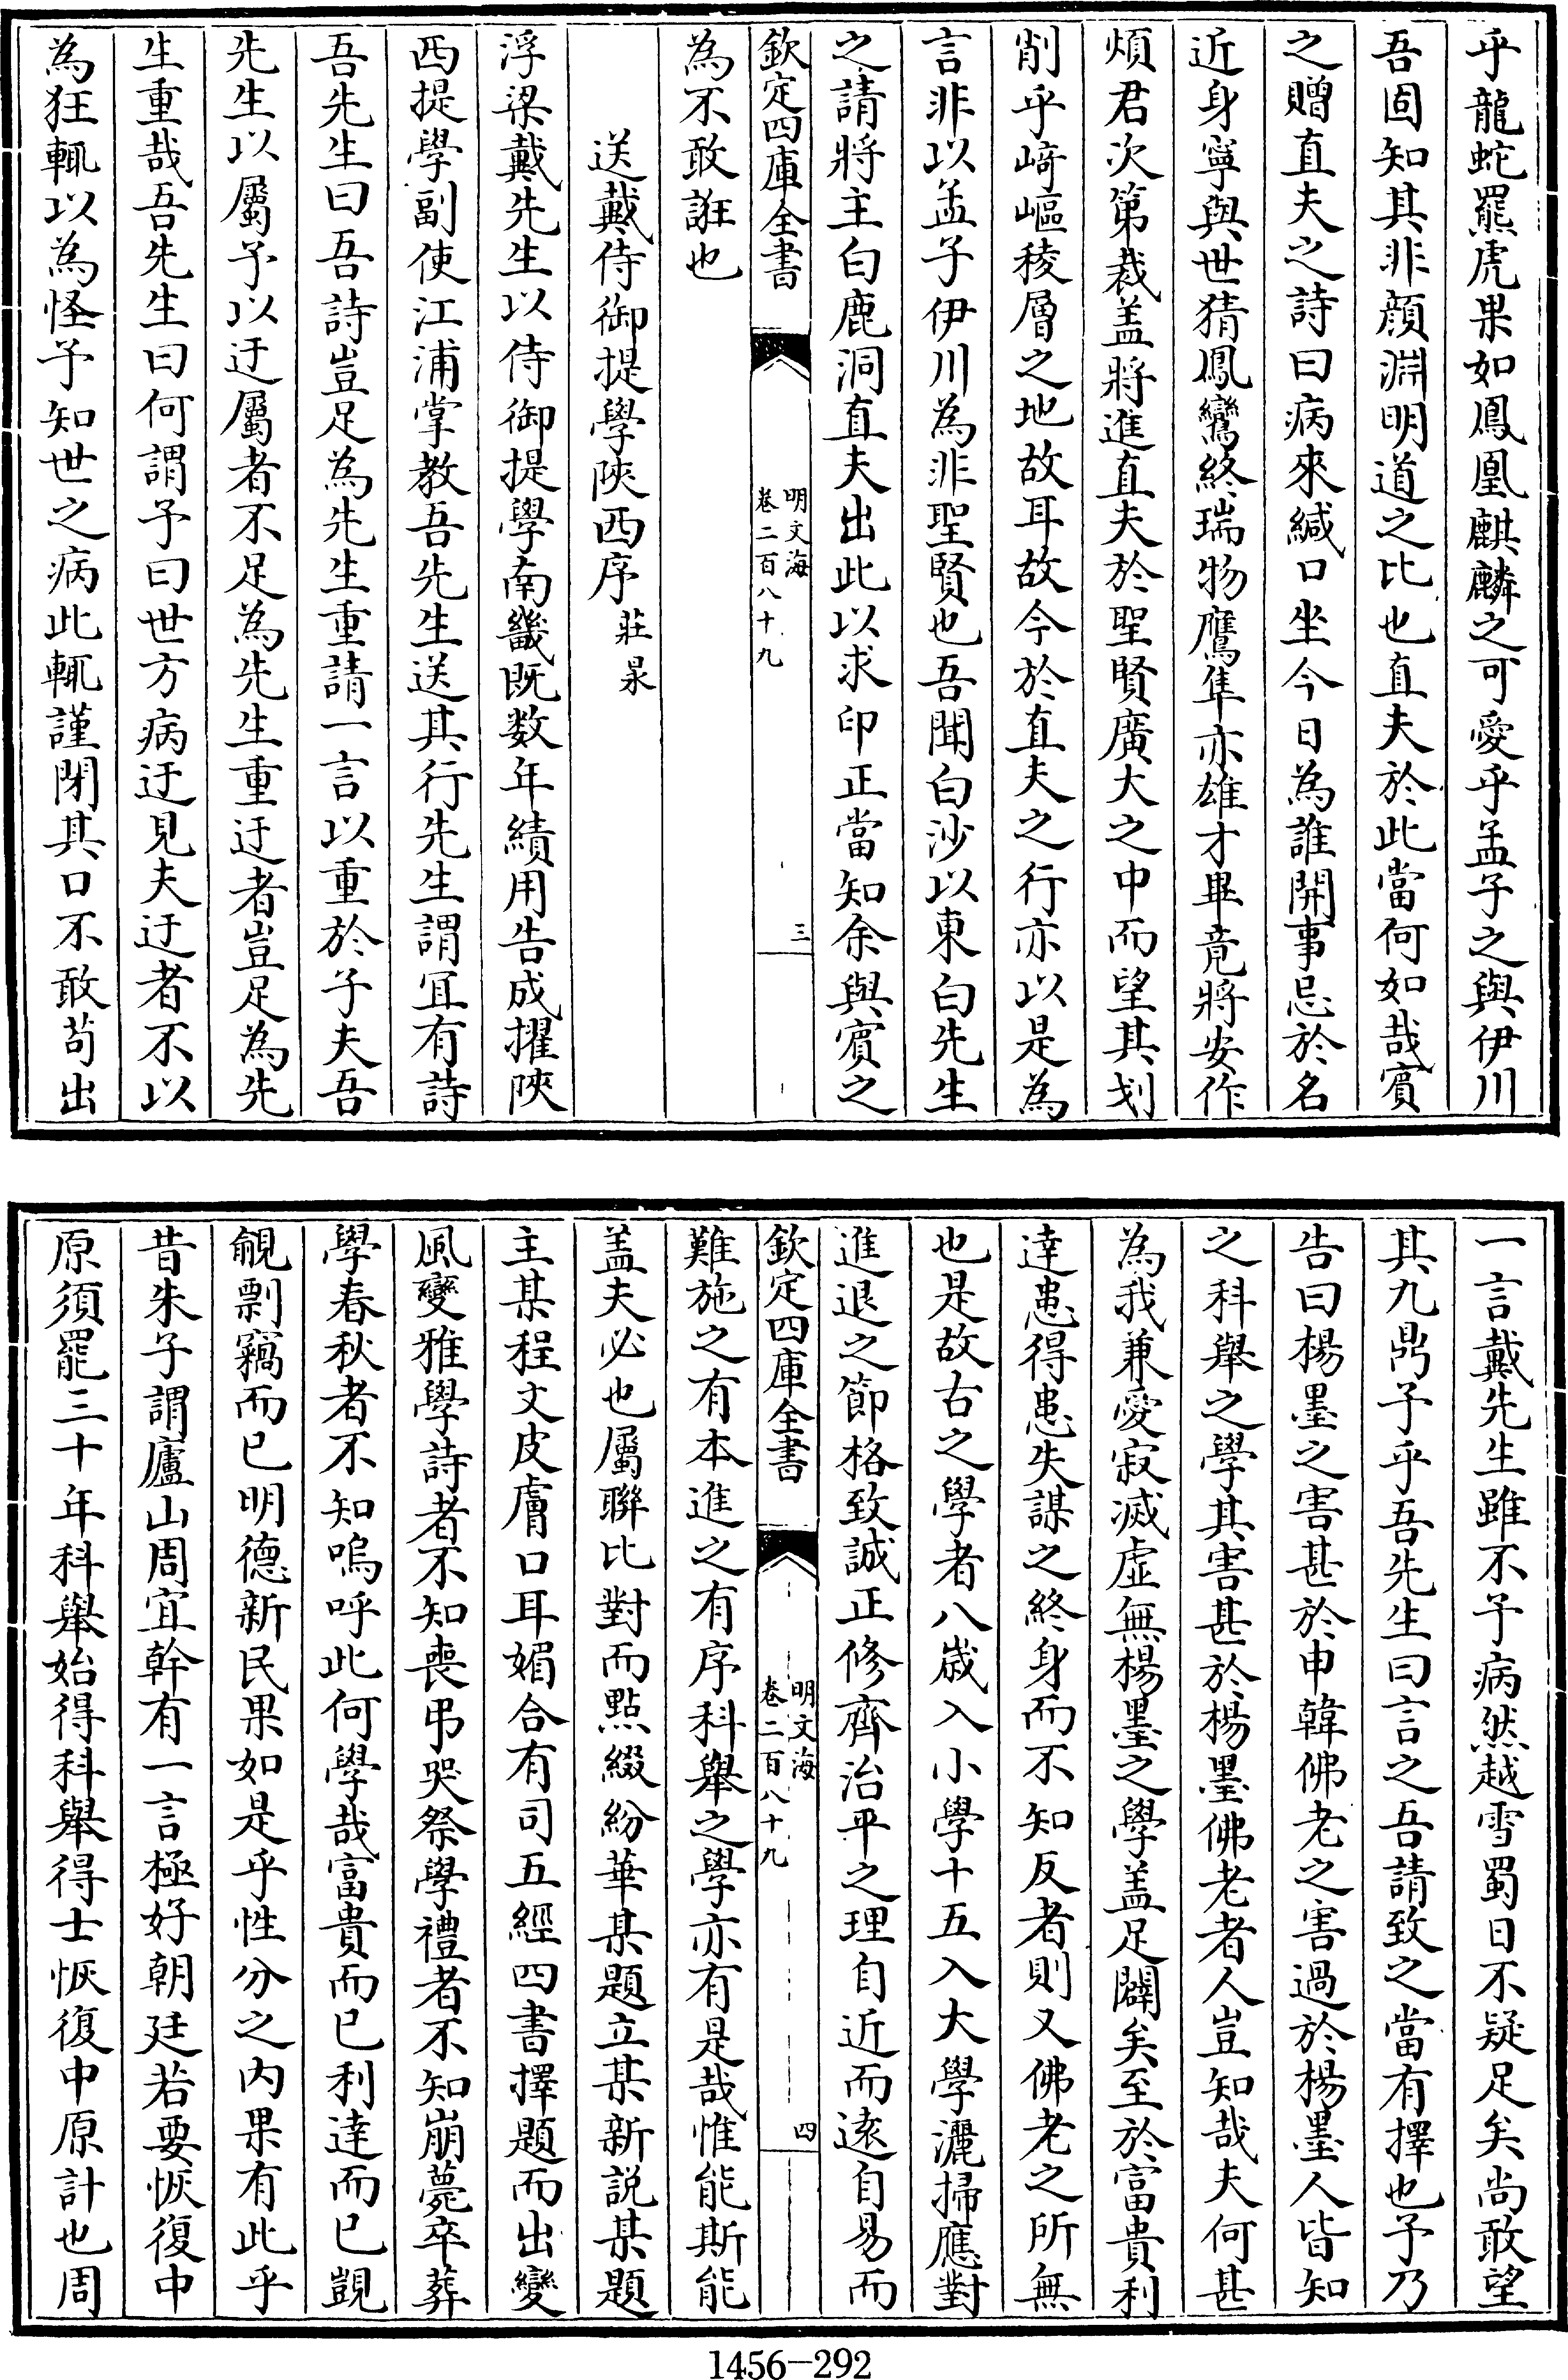 乎龍蛇羆虎果如鳳凰麒麟之可愛乎孟子之與伊川
吾固知其非顔淵明道之比也直夫於此當何如哉賔
之贈直夫之詩曰病來緘口坐今日為誰開事忌於名
近身寧與世猜鳳鸞終瑞物鷹隼亦雄才畢竟將安作
煩君次第裁盖將進直夫於聖賢廣大之中而望其刬
削乎崎嶇稜層之地故耳故今於直夫之行亦以是為
言非以孟子伊川為非聖賢也吾聞白沙以東白先生
之請將主白鹿洞直夫出此以求印正當知余與賔之
欽定四庫全書
明文海
卷二百八十九
三
為不敢誑也
送戴侍御提學陜西序
莊㫤
浮梁戴先生以侍御提學南畿既数年績用告成擢陜
西提學副使江浦掌教吾先生送其行先生謂宜有詩
吾先生曰吾詩豈足為先生重請一言以重於子夫吾
先生以屬予以迂屬者不足為先生重迂者豈足為先
生重哉吾先生曰何謂予曰世方病迂見夫迂者不以
為狂輒以為怪予知世之病此輒謹閉其口不敢苟出
一言戴先生雖不予病然越雪蜀日不疑足矣尚敢望
其九鼎子乎吾先生曰言之吾請致之當有擇也予乃
告曰楊墨之害甚於申韓佛老之害過於楊墨人皆知
之科舉之學其害甚於楊墨佛老者人豈知哉夫何甚
為我兼愛寂滅虛無楊墨之學盖足闢矣至於富貴利
達患得患失謀之終身而不知反者則又佛老之所無
也是故古之學者八歲入小學十五入大學灑掃應對
進退之節格致誠正修齊治平之理自近而逺自易而
欽定四庫全書
明文海
卷二百八十九
四
難施之有本進之有序科舉之學亦有是哉惟能斯能
盖夫必也屬聯比對而點綴紛華某題立某新説某題
主某程文皮膚口耳媚合有司五經四書擇題而出變
風變雅學詩者不知喪弔哭祭學禮者不知崩薨卒葬
學春秋者不知嗚呼此何學哉富貴而已利達而已覬
覦剽竊而已明德新民果如是乎性分之内果有此乎
昔朱子謂廬山周宜幹有一言極好朝廷若要恢復中
原須罷三十年科舉始得科舉得士恢復中原計也周
1456—292